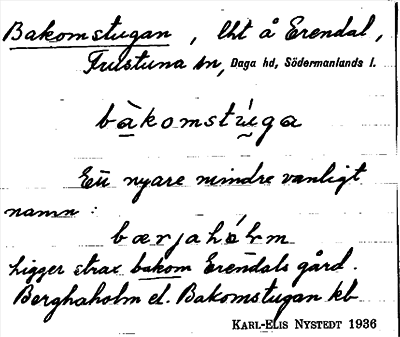 Bakomstugan, lht å Erendal,
Frustuna sn, Daga hd, Södermanlands l.
bàkomstúga
Ett nyare mindre vanligt
namn:
bærjahólm
Ligger strax bakom Erendals gård.
Berghaholm el. Bakomstugan kb
KARL-ELIS NYSTEDT 1936